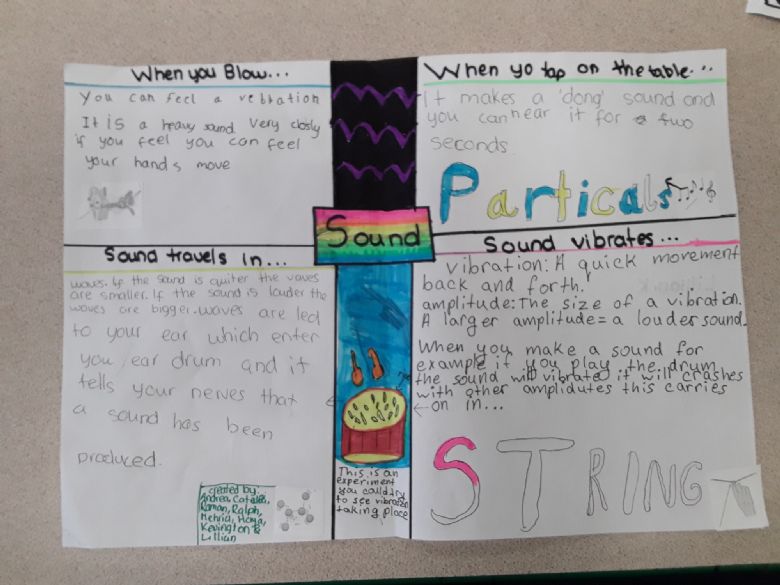 When you Blow...
You can feel a vebration
It is a heavy sound. Very closly
if you feel you can feel
your hands move
When yo tap on the table...
It makes a 'dong' sound and
you can hear it for two
seconds
Particals
Sound
Sound travels in...
waves. If the sound is quiter the waves
are smaller. If the sound is louder the
waves are bigger. waves are led
to your ear which enter
you ear drum and it
tells your nerves that
a sound has been
produced.
created by:
Andrea,
Raman, Ralph,
Lillian
This is an
experiment
you could
to see vibration
taking place
Sound vibrates...
Vibration: A quick movement
back and forth.
amplitude: The size of a vibration.
A larger amplitude = a louder sound.
When you make a sound for
example if you play the drum
the sound will vibrate it will crashes
with other amplidutes this carries
on in...
STRING